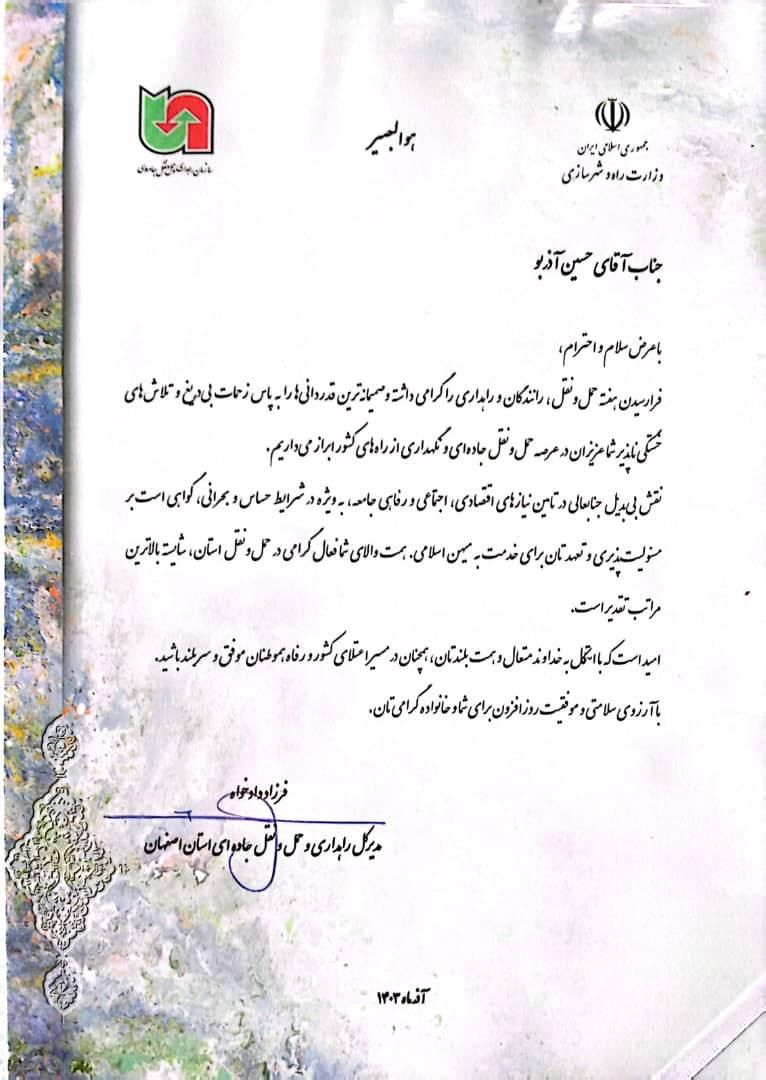 هوالبصیر
جمهوری اسلامی ایران
وزارت راه و شهرسازی
سازمان راهداری و حمل و نقل جاده‌ای
جناب آقای حسین آذربو
با عرض سلام و احترام،
فرارسیدن هفته حمل و نقل، رانندگان و راهداری را گرامی داشته و صمیمانه‌ترین قدردانی‌ها را به پاس زحمات بی‌دریغ و تلاش‌های
خستگی ناپذیر شما عزیزان در عرصه حمل و نقل جاده‌ای و نگهداری از راه‌های کشور ابراز می‌داریم.
نقش بی‌بدیل جنابعالی در تامین نیازهای اقتصادی، اجتماعی و رفاهی جامعه، به ویژه در شرایط حساس و بحرانی، گواهی است بر
مسئولیت‌پذیری و تعهدتان برای خدمت به میهن اسلامی. همت والای شما فعال گرامی در حمل و نقل استان، شایسته بالاترین
مراتب تقدیر است.
امید است که با اتکال به خداوند متعال و همت بلندتان، همچنان در مسیر اعتلای کشور و رفاه هموطنان موفق و سربلند باشید.
با آرزوی سلامتی و موفقیت روزافزون برای شما و خانواده گرامی‌تان.
فرزاد دادخواه
مدیرکل راهداری و حمل و نقل جاده ای استان اصفهان
آذرماه ۱۴۰۳